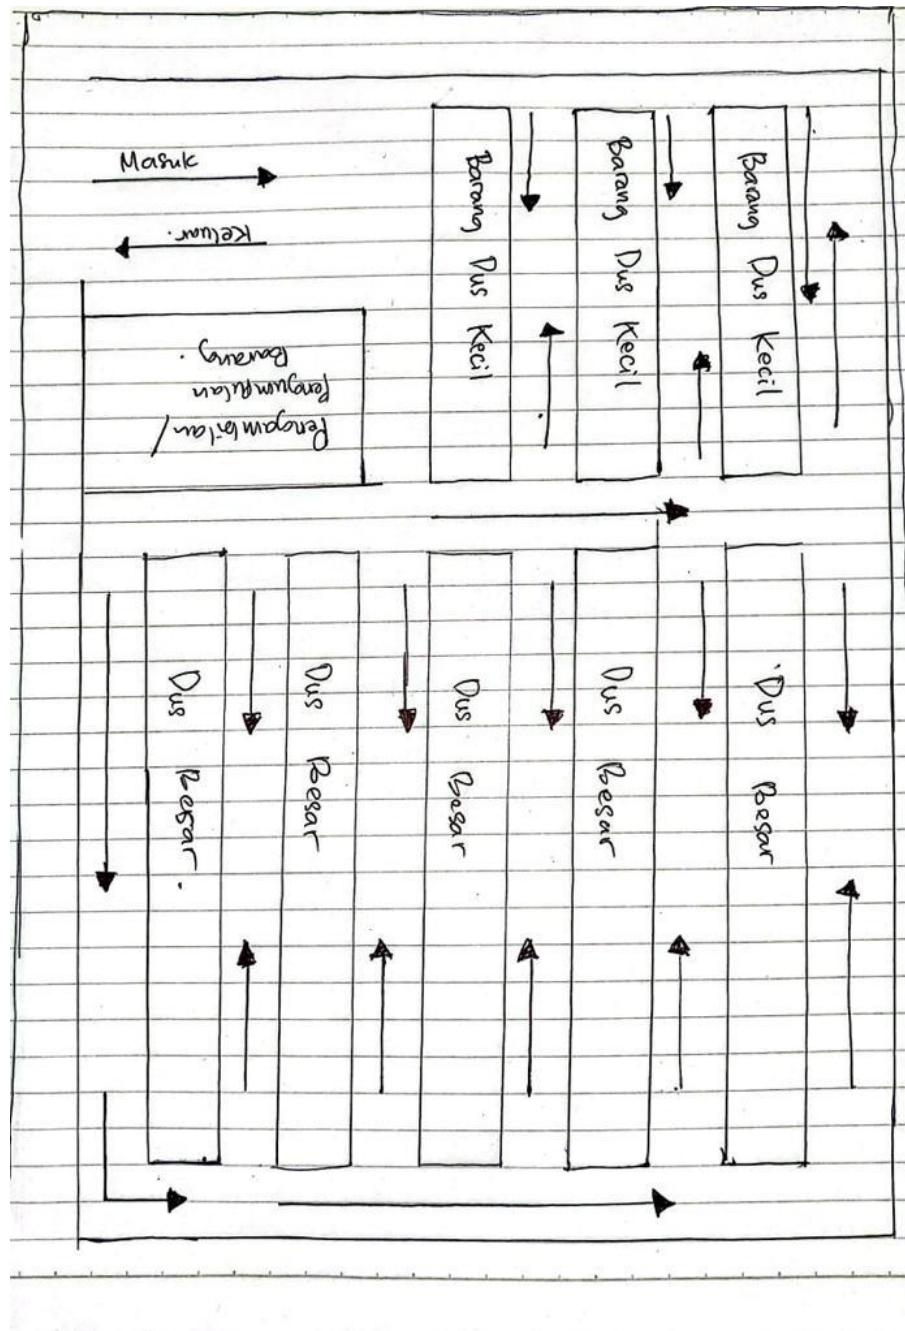 Masuk
Keluar.
Pengambilan /
Pengumpulan
Barang.
Barang Dus Kecil
Barang Dus Kecil
Barang Dus Kecil
Dus Besar.
Dus Besar
Dus Besar
Dus Besar
Dus Besar